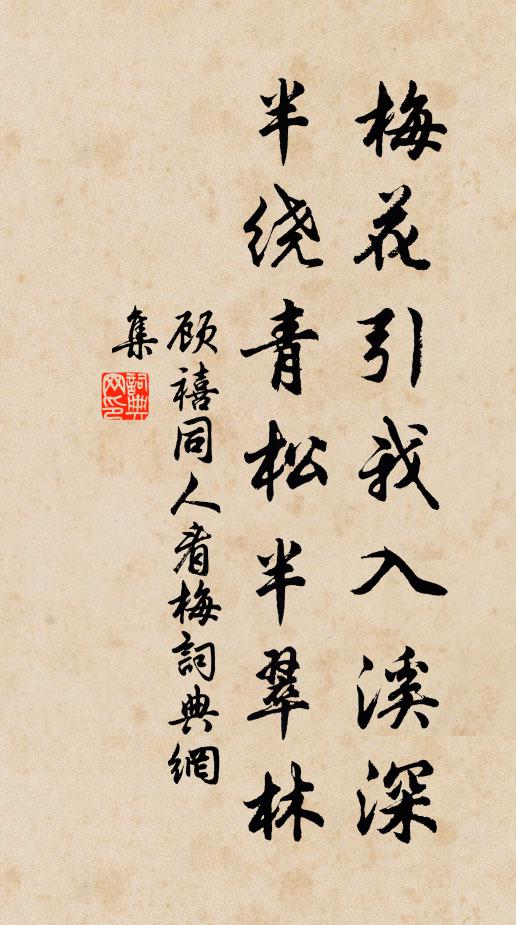 梅花引我入溪深
半绕青松半翠林
顾禧同人看梅詞典網
集
詞典
网印